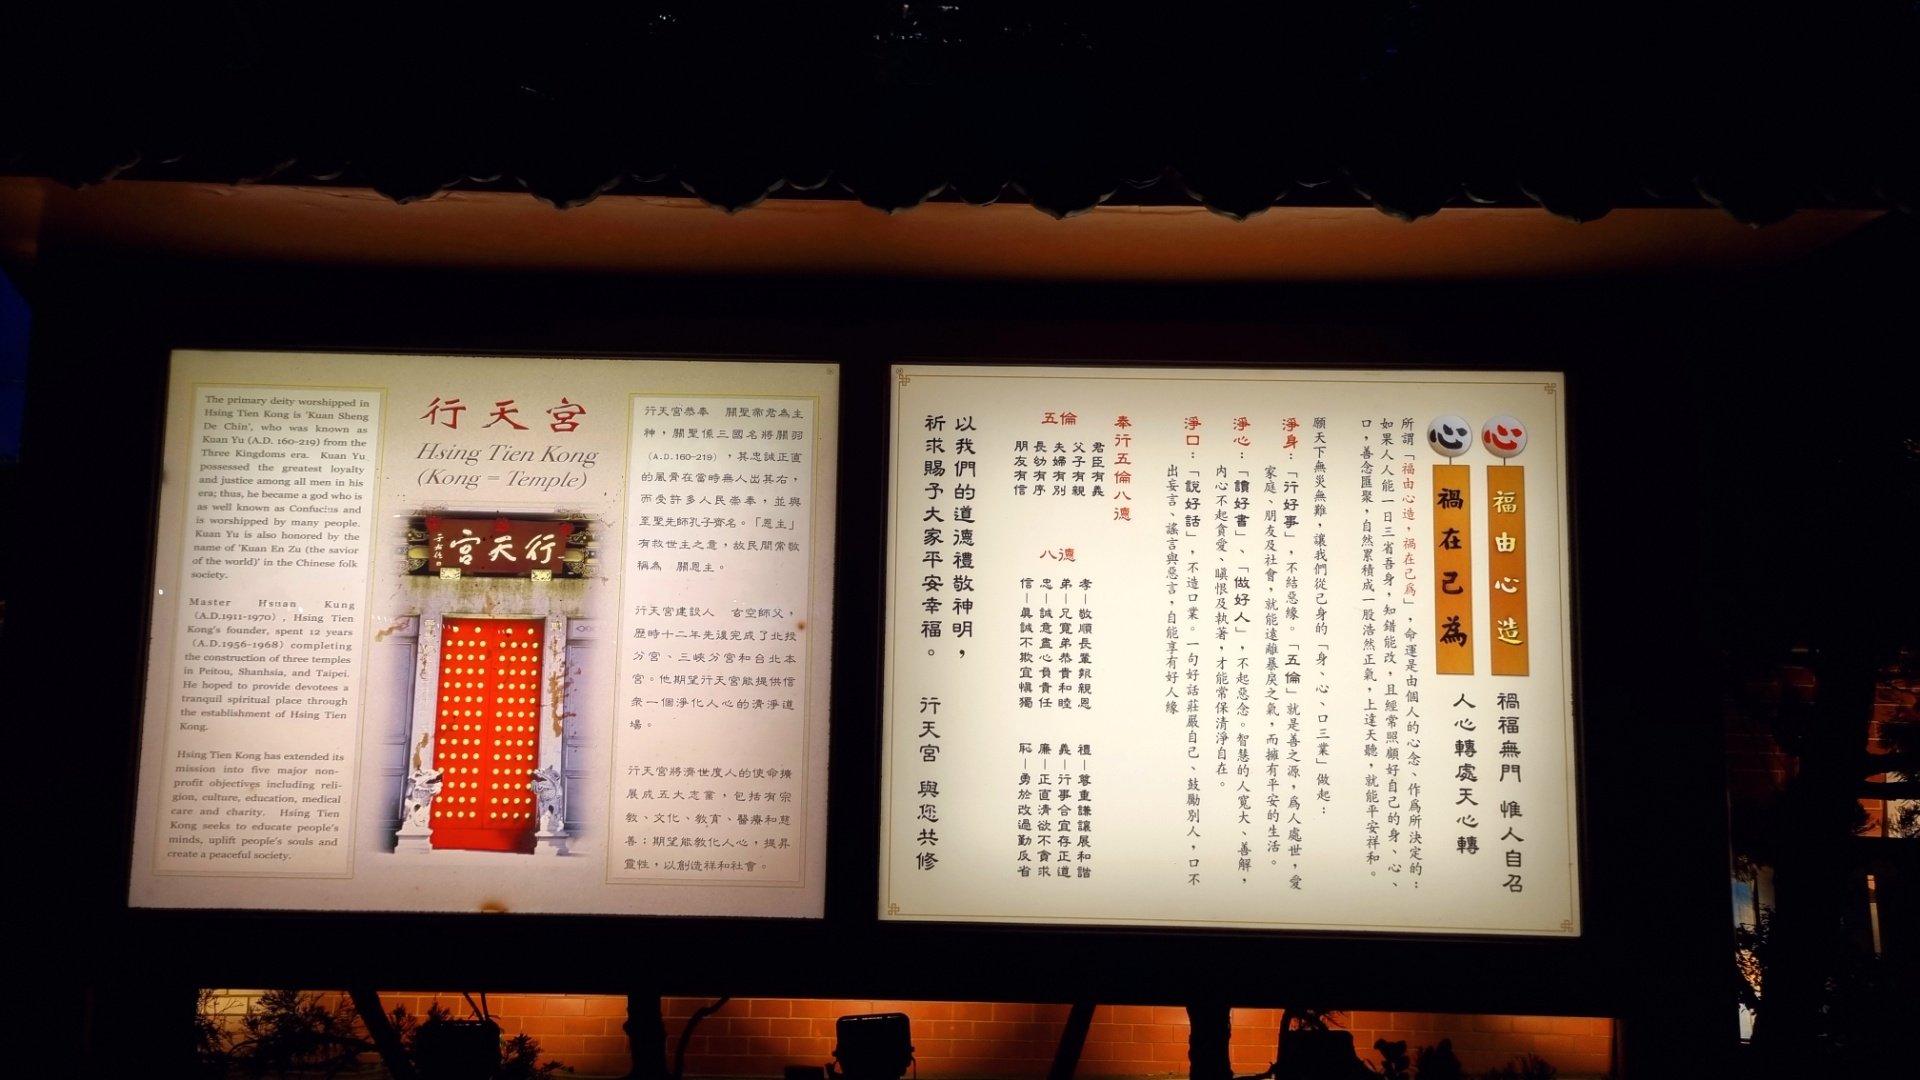 The primary deity worshipped in
Hsing Tien Kong is 'Kuan Sheng
De Chin', who was known as
Kuan Yu (A.D. 160-219) from the
Three Kingdoms era. Kuan Yu
possessed the greatest loyalty
and justice among all men in his
era; thus, he became a god who is
as well known as Confucius and
is worshipped by many people.
Kuan Yu is also honored by the
name of 'Kuan En Zu (the savior
of the world)' in the Chinese folk
society.
Master Hsuan Kung
(A.D.1911-1970) , Hsing Tien
Kong's founder, spent 12 years
(A.D.1956-1968) completing
the construction of three temples
in Peitou, Shanhsia, and Taipei.
He hoped to provide devotees a
tranquil spiritual place through
the establishment of Hsing Tien
Kong.
Hsing Tien Kong has extended its
mission into five major non-
profit objectives including reli-
gion, culture, education, medical
care and charity. Hsing Tien
Kong seeks to educate people's
minds, uplift people's souls and
create a peaceful society.
行天宮
Hsing Tien Kong
(Kong = Temple)
宮天行
行天宮恭奉 關聖帝君為主
神，關聖係三國名將關羽
(A.D.160-219)，其忠誠正直
的風骨在當時無人出其右，
而受許多人民崇奉，並與
至聖先師孔子齊名。「恩主」
有救世主之意，故民間常敬
稱為 關恩主。
行天宮建設人 玄空師父，
歷時十二年先後完成了北投
分宮、三峽分宮和台北本
宮。他期望行天宮能提供信
眾一個淨化人心的清淨道
場。
行天宮將濟世度人的使命擴
展成五大志業，包括有宗
教、文化、教育、醫療和慈
善；期望能教化人心，提昇
靈性，以創造祥和社會。
心 福由心造
心 禍在己為
禍福無門 惟人自召
人心轉處天心轉
所謂「福由心造，禍在己為」，命運是由個人的心念、作為所決定的；
如果人人能一日三省吾身，知錯能改，且經常照顧好自己的身、心、
口，善念匯聚，自然累積成一股浩然正氣，上達天聽，就能平安祥和。
願天下無災無難，讓我們從己身的「身、心、口三業」做起：
淨身：「行好事」，不結惡緣。「五倫」就是善之源，為人處世，愛
家庭、朋友及社會，就能遠離暴戾之氣，而擁有平安的生活。
淨心：「讀好書」、「做好人」，不起惡念。智慧的人寬大、善解，
內心不起貪愛、瞋恨及執著，才能常保清淨自在。
淨口：「說好話」，不造口業。一句好話莊嚴自己、鼓勵別人，口不
出妄言、謠言與惡言，自能享有好人緣
奉行五倫八德
五倫
君臣有義
父子有親
夫婦有別
長幼有序
朋友有信
八德
孝－敬順長輩報親恩
弟－兄寬弟恭貴和睦
忠－誠意盡心負責任
信－真誠不欺宜慎獨
禮－尊重謙讓展和諧
義－行事合宜存正道
廉－正直清欲不貪求
恥－勇於改過勤反省
以我們的道德禮敬神明，
祈求賜予大家平安幸福。
行天宮 與您共修